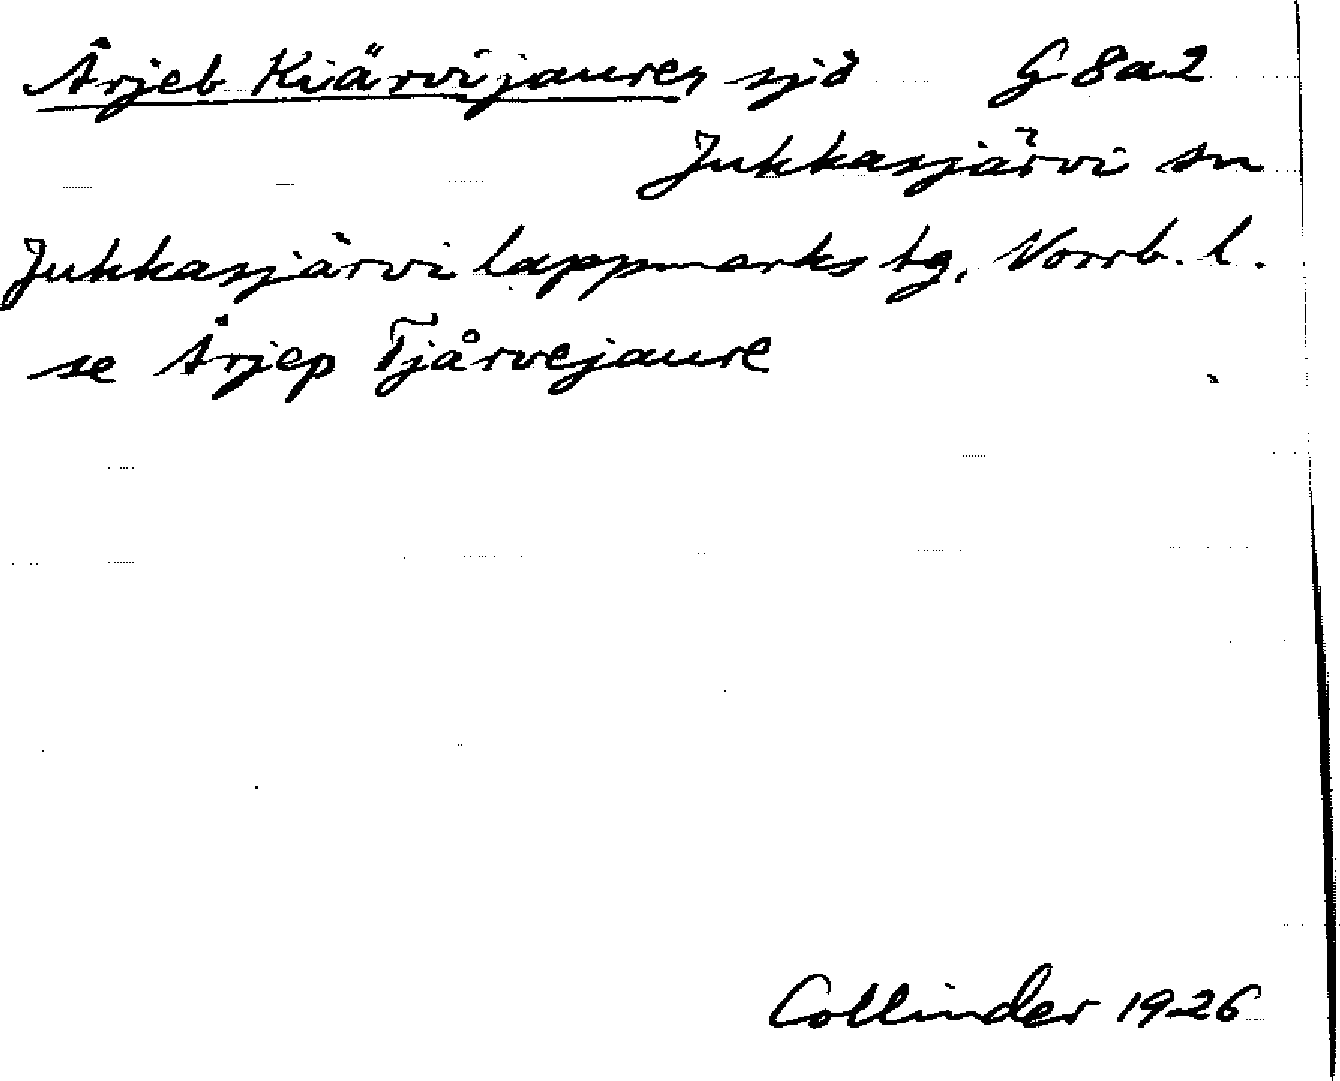 Årjeb Kiärvijaure, sjö G 8a2
Jukkasjärvi sn
Jukkasjärvi lappmarks tg, Norrb. l.
se Årjep Tjårvejaure
Collinder 1926